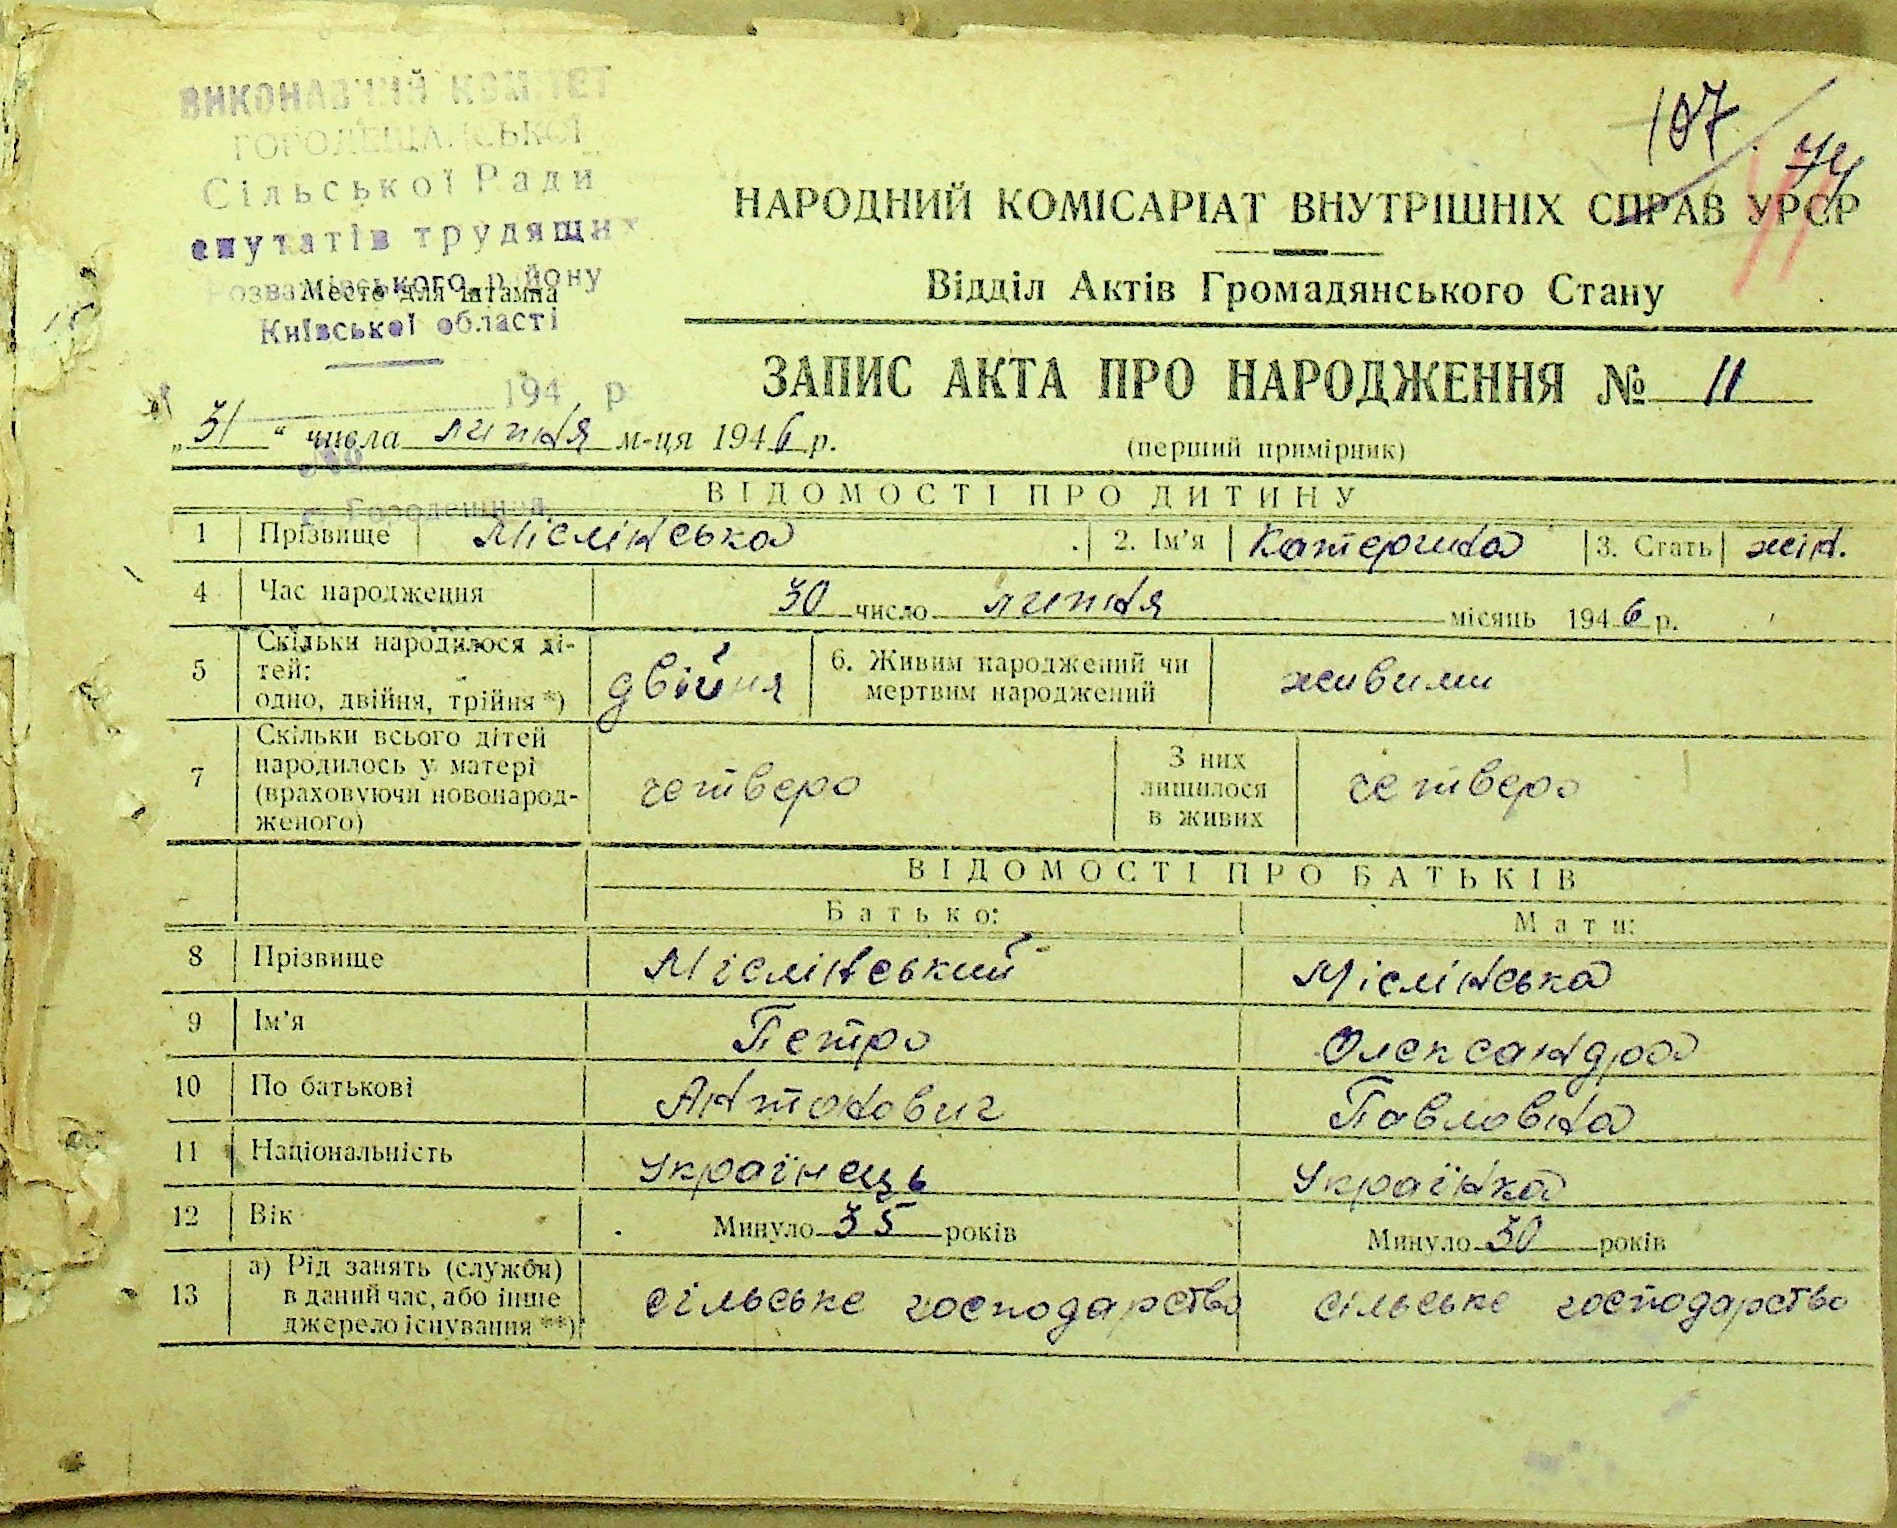 ВИКОНАВЧИЙ КОМІТЕТ
ГОРОДЕЩАНСЬКОЇ
Сільської Ради
епутатів трудящих
Розважівського району
Место для штампа
Київської області
194 р.
107
74
НАРОДНИЙ КОМІСАРІАТ ВНУТРІШНІХ СПРАВ УРСР
Відділ Актів Громадянського Стану
ЗАПИС АКТА ПРО НАРОДЖЕННЯ № 11
„31“ числа липня м-ця 1946 р.
(перший примірник)
ВІДОМОСТІ ПРО ДИТИНУ
1 ПрізвищеМіслінська 2. Ім'я Катерина 3. Стать жін.
4 Час народження 30 число липня місяць 1946 р.
5 Скільки народилося ді-
тей:
одно, двійня, трійня *) двійня 6. Живим народжений чи
мертвим народжений живими
7 Скільки всього дітей
народилось у матері
(враховуючи новонарод-
женого) четверо З них
лишилося
в живих четверо
ВІДОМОСТІ ПРО БАТЬКІВ
Батько: Мати:
8 Прізвище Міслінський Міслінська
9 Ім'я Петро Олександра
10 По батькові Антонович Павловна
11 Національність Українець Українка
12 Вік Минуло 35 років Минуло 30 років
13 а) Рід занять (служби)
в даний час, або інше
джерело існування **) сільське господарство сільське господарство